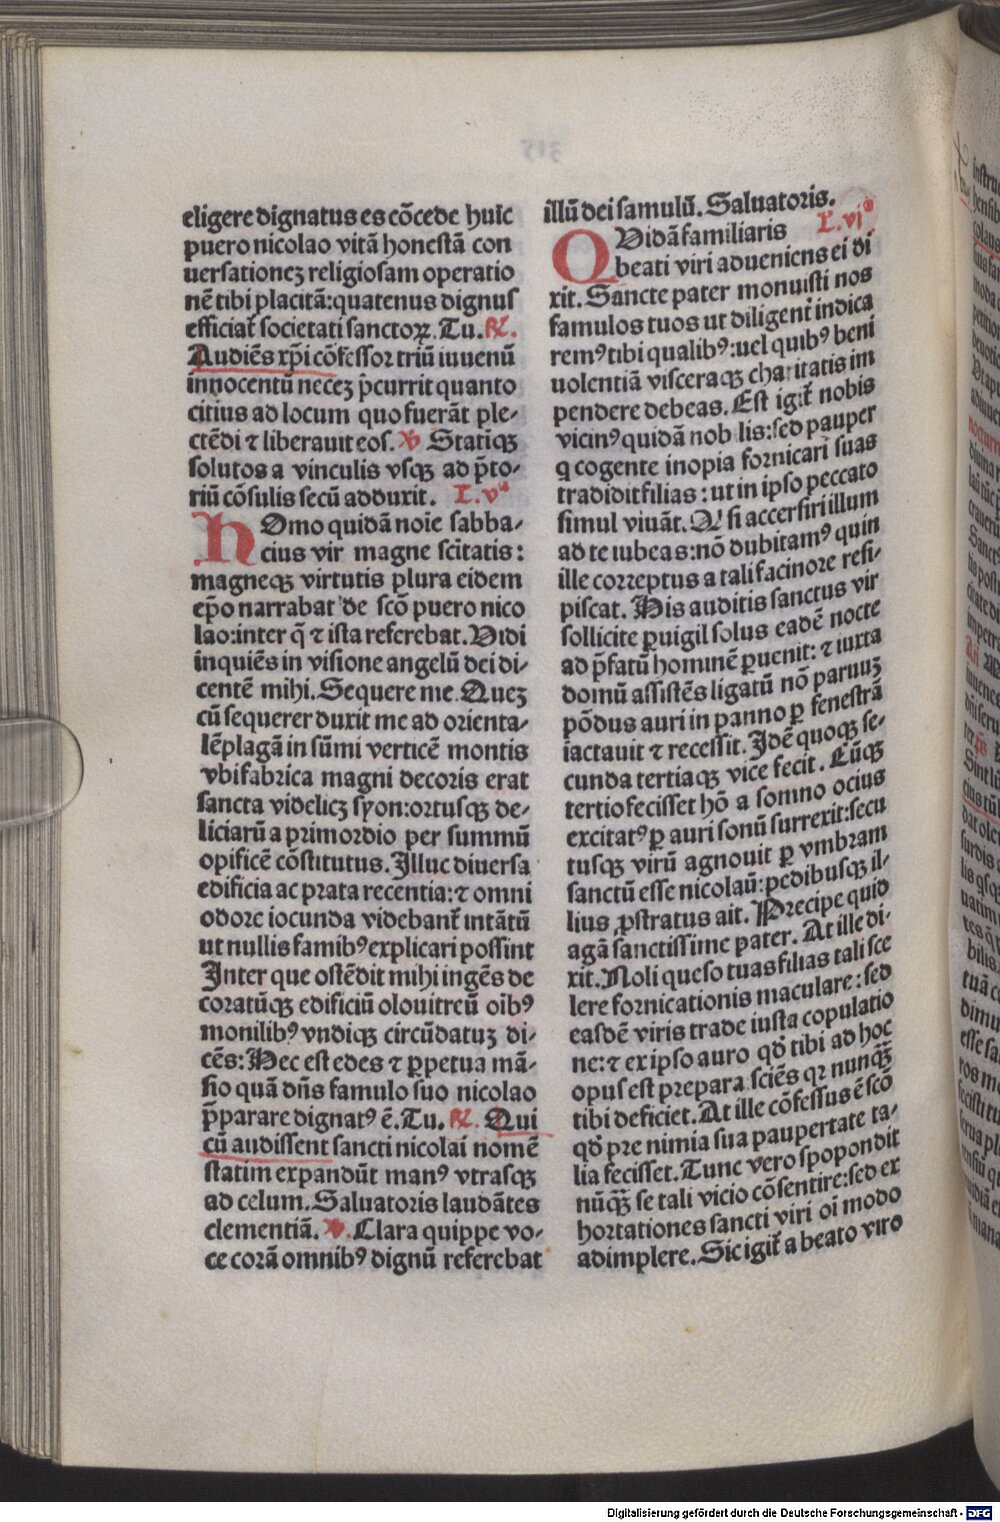 eligere dignatus es cōcede huic
puero nicolao vitā honestā con
uersationeʒ religiosam operatio
nē tibi placitā: quatenus dignus
efficiat᷑ societati sanctoꝝ. Tu. ℟.
Audiēs xp̄i cōfessor triū iuuenū
innocentū neceʒ p̄currit quanto
citius ad locum quo fuerāt ple-
ctēdi ⁊ liberauit eos. ℣ Statiqꝫ
solutos a vinculis vsqꝫ ad p̄to-
riū cōsulis secū adduxit. L. vᵃ
hOmo quidā noīe sabba-
cius vir magne scītatis:
magneqꝫ virtutis plura eidem
ep̄o narrabat de scō puero nico
lao: inter q̄ ⁊ ista referebat. Vidi
inquiēs in visione angelū dei di-
centē mihi. Sequere me. Queʒ
cū sequerer duxit me ad orienta-
lē plagā in sūmi verticē montis
vbi fabrica magni decoris erat
sancta videlicꝫ syon: ortusqꝫ de-
liciarū a primordio per summū
opificē cōstitutus. Illuc diuersa
edificia ac prata recentia: ⁊ omni
odore iocunda videbant᷑ intātū
ut nullis famibꝰ explicari possint
Inter que ostēdit mihi ingēs de
coratūqꝫ edificiū olouitreū oībꝰ
monilibꝰ vndiqꝫ circūdatuʒ di-
cēs: Hec est edes ⁊ ꝑpetua mā-
sio quā dn̄s famulo suo nicolao
p̄parare dignatꝰ ē. Tu. ℟. Qui
cū audissent sancti nicolai nomē
statim expandūt manꝰ vtrasqꝫ
ad celum. Saluatoris laudātes
clementiā. ℣. Clara quippe vo-
ce corā omnibꝰ dignū referebat
illū dei famulū. Saluatoris.
QVidā familiaris L. vjᵃ
beati viri adueniens ei di
xit. Sancte pater monuisti nos
famulos tuos ut diligent᷑ indica
remꝰ tibi qualibꝰ: uel quibꝰ beni
uolentiā visceraqꝫ charitatis im
pendere debeas. Est igit᷑ nobis
vicinꝰ quidā nobilis: sed pauper
q cogente inopia fornicari suas
tradidit filias: ut in ipso peccato
simul viuāt. Qꝫ si accersiri illum
ad te iubeas: nō dubitamꝰ quin
ille correptus a tali facinore resi-
piscat. His auditis sanctus vir
sollicite ꝑuigil solus eadē nocte
ad p̄fatū hominē ꝑuenit: ⁊ iuxta
domū assistēs ligatū nō paruuʒ
pōdus auri in panno ꝑ fenestrā
iactauit ⁊ recessit. Idē quoqꝫ se-
cunda tertiaqꝫ vice fecit. Cūqꝫ
tertio fecisset hō a somno ocius
excitatꝰ ꝑ auri sonū surrexit: secu
tusqꝫ virū agnouit ꝑ vmbram
sanctū esse nicolaū: pedibusqꝫ il-
lius ꝓstratus ait. Precipe quid
agā sanctissime pater. At ille di-
xit. Noli queso tuas filias tali sce
lere fornicationis maculare: sed
easdē viris trade iusta copulatio
ne: ⁊ ex ipso auro qd̄ tibi ad hoc
opus est prepara sciēs qꝛ nunqꝫ̄
tibi deficiet. At ille cōfessus ē scō
qd̄ pre nimia sua paupertate ta-
lia fecisset. Tunc vero spopondit
nūqꝫ̄ se tali vicio cōsentire: sed ex
hortationes sancti viri oī modo
adimplere. Sic igit᷑ a beato viro
Digitalisierung gefördert durch die Deutsche Forschungsgemeinschaft - DFG